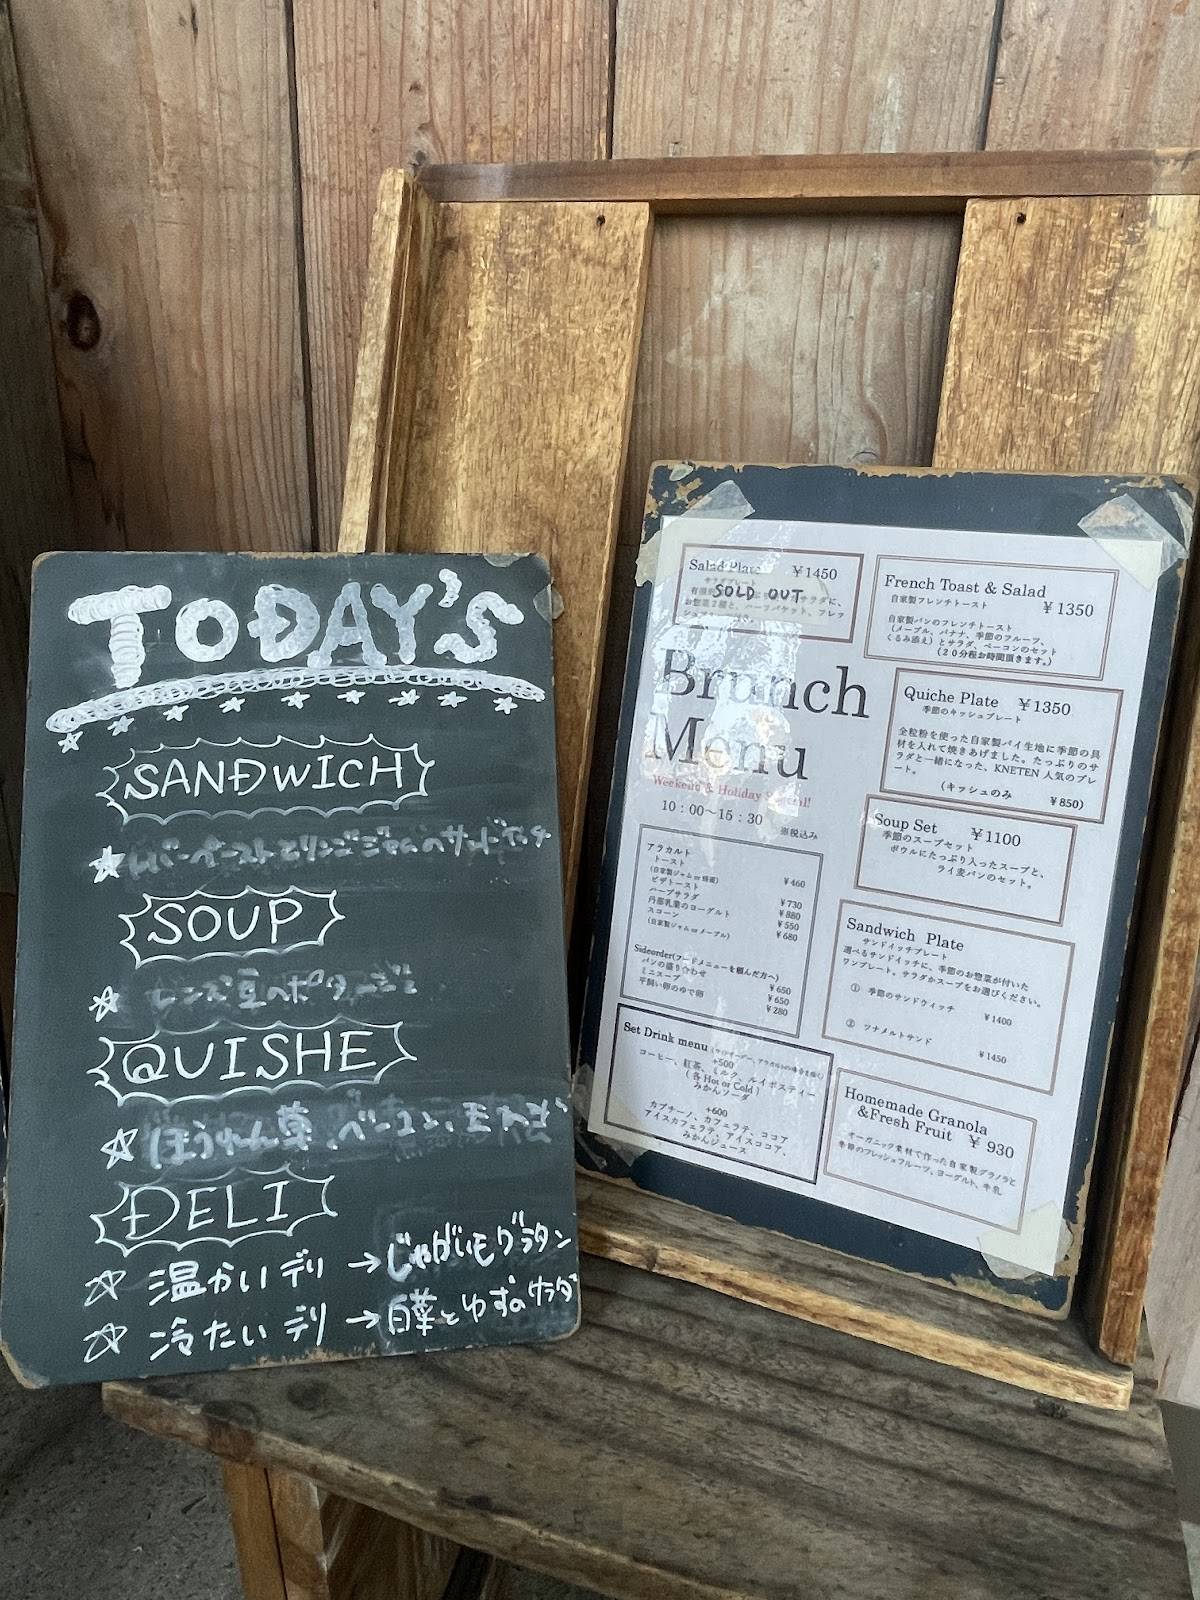 TODAY'S
SANDWICH
レバーペーストとリンゴジャムのサンドイッチ
SOUP
レンズ豆のポタージュ
QUISHE
ほうれん草、ベーコン、玉ねぎ
DELI
温かいデリ → じゃがいもグラタン
冷たいデリ → 白菜とゆずのサラダ
Salad Plate ¥1450
サラダプレート
SOLD OUT
French Toast & Salad
自家製フレンチトースト ¥1350
自家製パンのフレンチトースト
(メープル、バナナ、季節のフルーツ、
くるみ添え)とサラダ、ベーコンのセット
(20分程お時間頂きます。)
Brunch
Menu
Weekend & Holiday Special!
10:00~15:30
※税込み
Quiche Plate ¥1350
季節のキッシュプレート
全粒粉を使った自家製パイ生地に季節の具
材を入れて焼きあげました。たっぷりのサ
ラダと一緒になった、KNETEN 人気のプレ
ート。
(キッシュのみ ¥850)
Soup Set ¥1100
季節のスープセット
ボウルにたっぷり入ったスープと、
ライ麦パンのセット。
アラカルト
トースト
(自家製ジャム or 蜂蜜) ¥460
ピザトースト ¥730
ハーブサラダ ¥880
丹那乳業のヨーグルト ¥550
スコーン ¥680
(自家製ジャム or メープル)
Sideorder(フードメニューを頼んだ方へ)
パンの盛り合わせ ¥650
ミニスープ ¥650
平飼い卵のゆで卵 ¥280
Sandwich Plate
サンドイッチプレート
選べるサンドイッチに、季節のお惣菜が付いた
ワンプレート。サラダかスープをお選びください。
① 季節のサンドウィッチ
¥1400
② ツナメルトサンド
¥1450
Set Drink menu
+500
コーヒー、紅茶、ミルク、ルイボスティー
(各 Hot or Cold)
みかんソーダ
+600
カプチーノ、カフェラテ、ココア
アイスカフェラテ、アイスココア、
みかんジュース
Homemade Granola
&Fresh Fruit ¥930
オーガニック素材で作った自家製グラノラと
季節のフレッシュフルーツ、ヨーグルト、牛乳